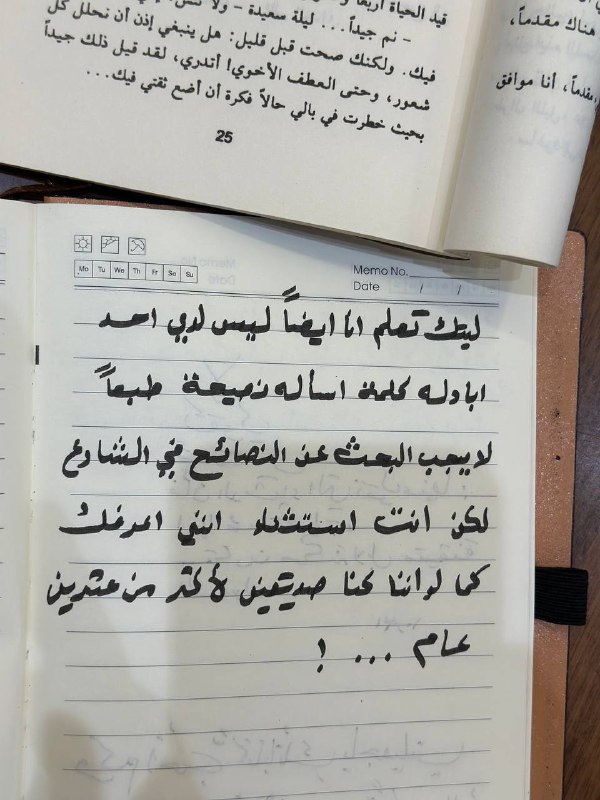 قيد الحياة
– نم جيداً... ليلة سعيدة –
فيك. ولكنك صحت قبل قليل: هل ينبغي إذن أن نحلل كل
شعور، وحتى العطف الأخوي! أتدري، لقد قيل ذلك جيداً
بحيث خطرت في بالي حالاً فكرة أن أضع ثقتي فيك...
25
هناك مقدماً،
مقدماً، أنا موافق
Mo Tu We Th Fr Sa Su
Memo No.
Date / /
ليتك تعلم انا ايضاً ليس لدي احد
ابادله كلمة اسأله نصيحة طبعاً
لا يجب البحث عن النصائح في الشارع
لكن أنت استثناء انني اعرفك
كما لو اننا كنا صديقين لأكثر من عشرين
عام ... !